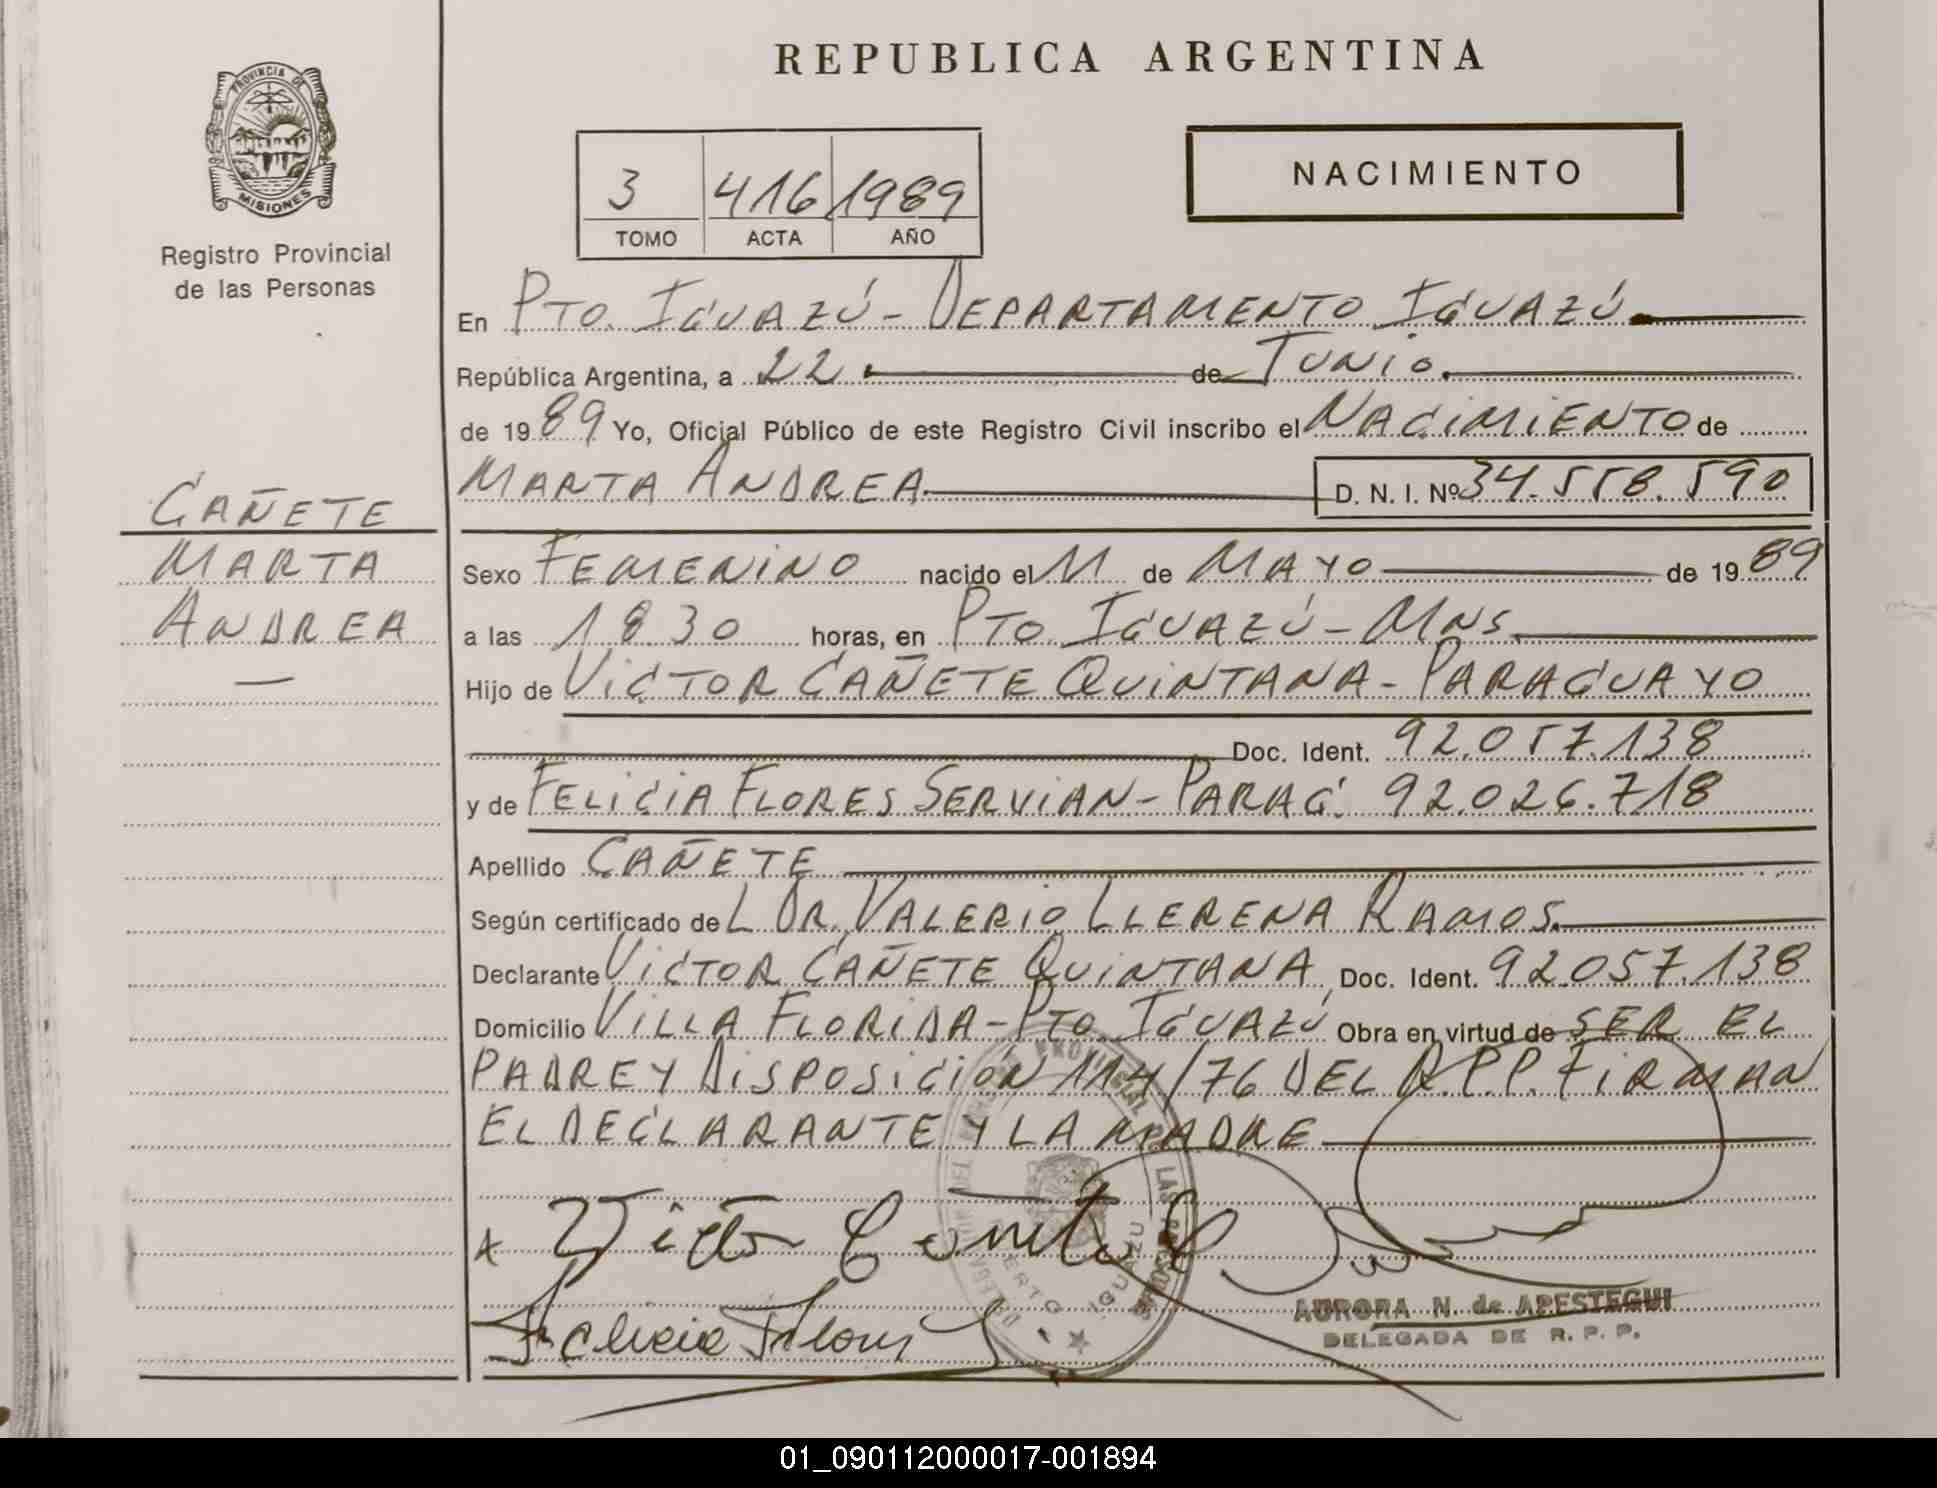 REPUBLICA ARGENTINA
PROVINCIA DE
MISIONES
Registro Provincial
de las Personas
NACIMIENTO
3 416 1989
TOMO ACTA AÑO
En PTO. IGUAZÚ - DEPARTAMENTO IGUAZÚ
República Argentina, a 22 de JUNIO
de 1989 Yo, Oficial Público de este Registro Civil inscribo el NACIMIENTO de
MARTA ANDREA D. N. I. Nº 34.558.590
CAÑETE
MARTA
ANDREA
Sexo FEMENINO nacido el 11 de MAYO de 1989
a las 1830 horas, en PTO. IGUAZÚ - MNS
Hijo de VICTOR CAÑETE QUINTANA - PARAGUAYO
Doc. Ident. 92.057.138
y de FELICIA FLORES SERVIAN - PARAG. 92.026.718
Apellido CAÑETE
Según certificado de L DR. VALERIO LLERENA RAMOS.
Declarante VICTOR CAÑETE QUINTANA, Doc. Ident. 92.057.138
Domicilio VILLA FLORIDA - PTO IGUAZÚ Obra en virtud de SER EL
PADRE Y DISPOSICIÓN 114/76 DEL R.P.P. FIRMAN
EL DECLARANTE Y LA MADRE
Victor
AURORA N. de APESTEGUI
DELEGADA DE R. P. P.
01_090112000017-001894